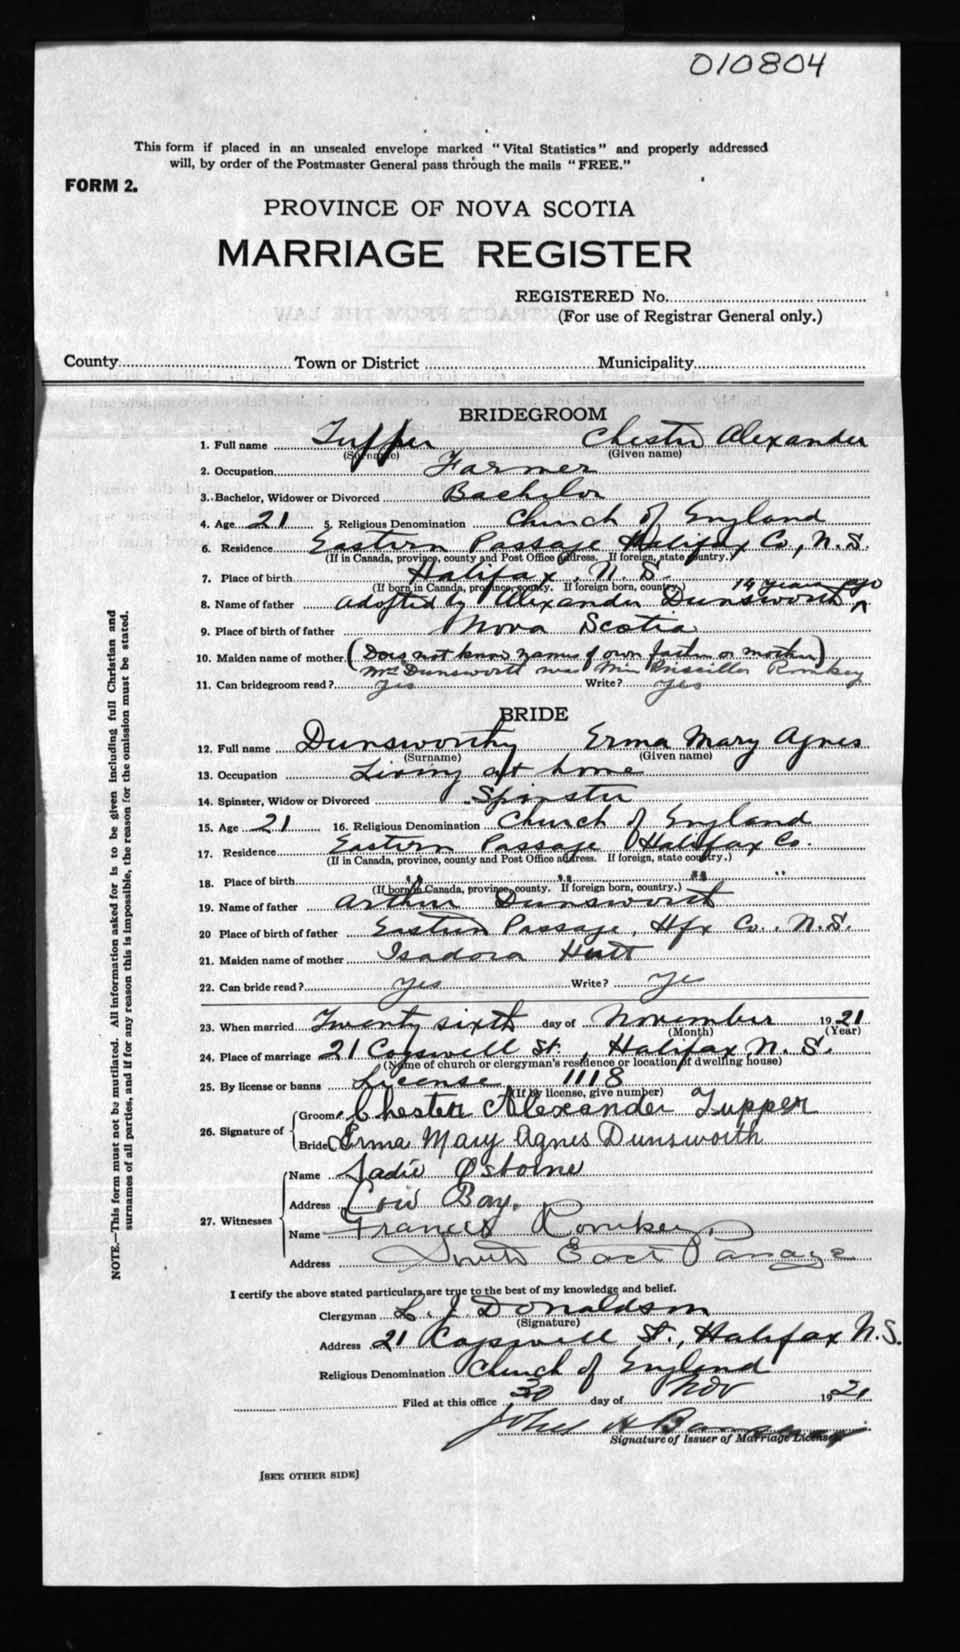 010804
This form if placed in an unsealed envelope marked "Vital Statistics" and properly addressed
will, by order of the Postmaster General pass through the mails "FREE."
FORM 2.
PROVINCE OF NOVA SCOTIA
MARRIAGE REGISTER
REGISTERED No.
(For use of Registrar General only.)
County Town or District Municipality
BRIDEGROOM
1. Full name Tupper Chester Alexander
(Surname) (Given name)
2. Occupation Farmer
3. Bachelor, Widower or Divorced Bachelor
4. Age 21 5. Religious Denomination Church of England
6. Residence Eastern Passage Halifax Co., N.S.
(If in Canada, province, county and Post Office address. If foreign, state country.)
7. Place of birth Halifax, N.S.
(If born in Canada, province, county. If foreign born, country.) 14 years ago
8. Name of father Adopted by Alexander Dunsworth ^
9. Place of birth of father Nova Scotia
10. Maiden name of mother (Does not know names of own father or mother)
Mrs Dunsworth was Miss Priscilla Romkey
11. Can bridegroom read? Yes Write? Yes
BRIDE
12. Full name Dunsworthy Erma Mary Agnes
(Surname) (Given name)
13. Occupation Living at home
14. Spinster, Widow or Divorced Spinster
15. Age 21 16. Religious Denomination Church of England
17. Residence Eastern Passage Halifax Co.
(If in Canada, province, county and Post Office address. If foreign, state country.)
18. Place of birth " " " "
(If born in Canada, province, county. If foreign born, country.)
19. Name of father Arthur Dunsworth
20 Place of birth of father Eastern Passage, Hfx Co., N.S.
21. Maiden name of mother Isadora Hutt
22. Can bride read? yes Write? ye
23. When married Twenty sixth day of November 1921
(Month) (Year)
24. Place of marriage 21 Cogswell St., Halifax, N.S.
(Name of church or clergyman's residence or location of dwelling house)
25. By license or banns License 1118
(If by license, give number)
26. Signature of Groom Chester Alexander Tupper
Bride Erma Mary Agnes Dunsworth
27. Witnesses
Name Sadie Osborne
Address Cow Bay.
Name Frances Romkey.
Address South East Passage
I certify the above stated particulars are true to the best of my knowledge and belief.
Clergyman L. J. Donaldson
(Signature)
Address 21 Cogswell St., Halifax N.S.
Religious Denomination Church of England
Filed at this office 30 day of Nov 1921
John H
Signature of Issuer of Marriage Licenses
[SEE OTHER SIDE]
NOTE.—This form must not be mutilated. All information asked for is to be given including full Christian and
surnames of all parties, and if for any reason this is impossible, the reason for the omission must be stated.